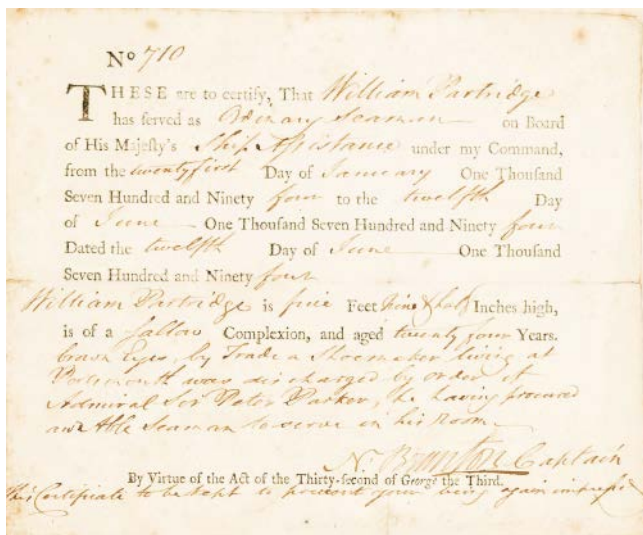 No 710
THESE are to certify, That William Partridge
has served as Ordinary Seaman on Board
of His Majesty's Ship Assistance under my Command,
from the twenty first Day of January One Thousand
Seven Hundred and Ninety four to the twelfth Day
of June One Thousand Seven Hundred and Ninety four
Dated the twelfth Day of June One Thousand
Seven Hundred and Ninety four
William Partridge is five Feet Nine & half Inches high,
is of a sallow Complexion, and aged twenty four Years.
brown Eyes, by Trade a Shoemaker living at
Portsmouth was discharged by order of
Admiral Sir Peter Parker, he having procured
an Able Seaman to serve in his Room
N. Captain
By Virtue of the Act of the Thirty-second of George the Third.
this Certificate to be kept to prevent your being again impress'd